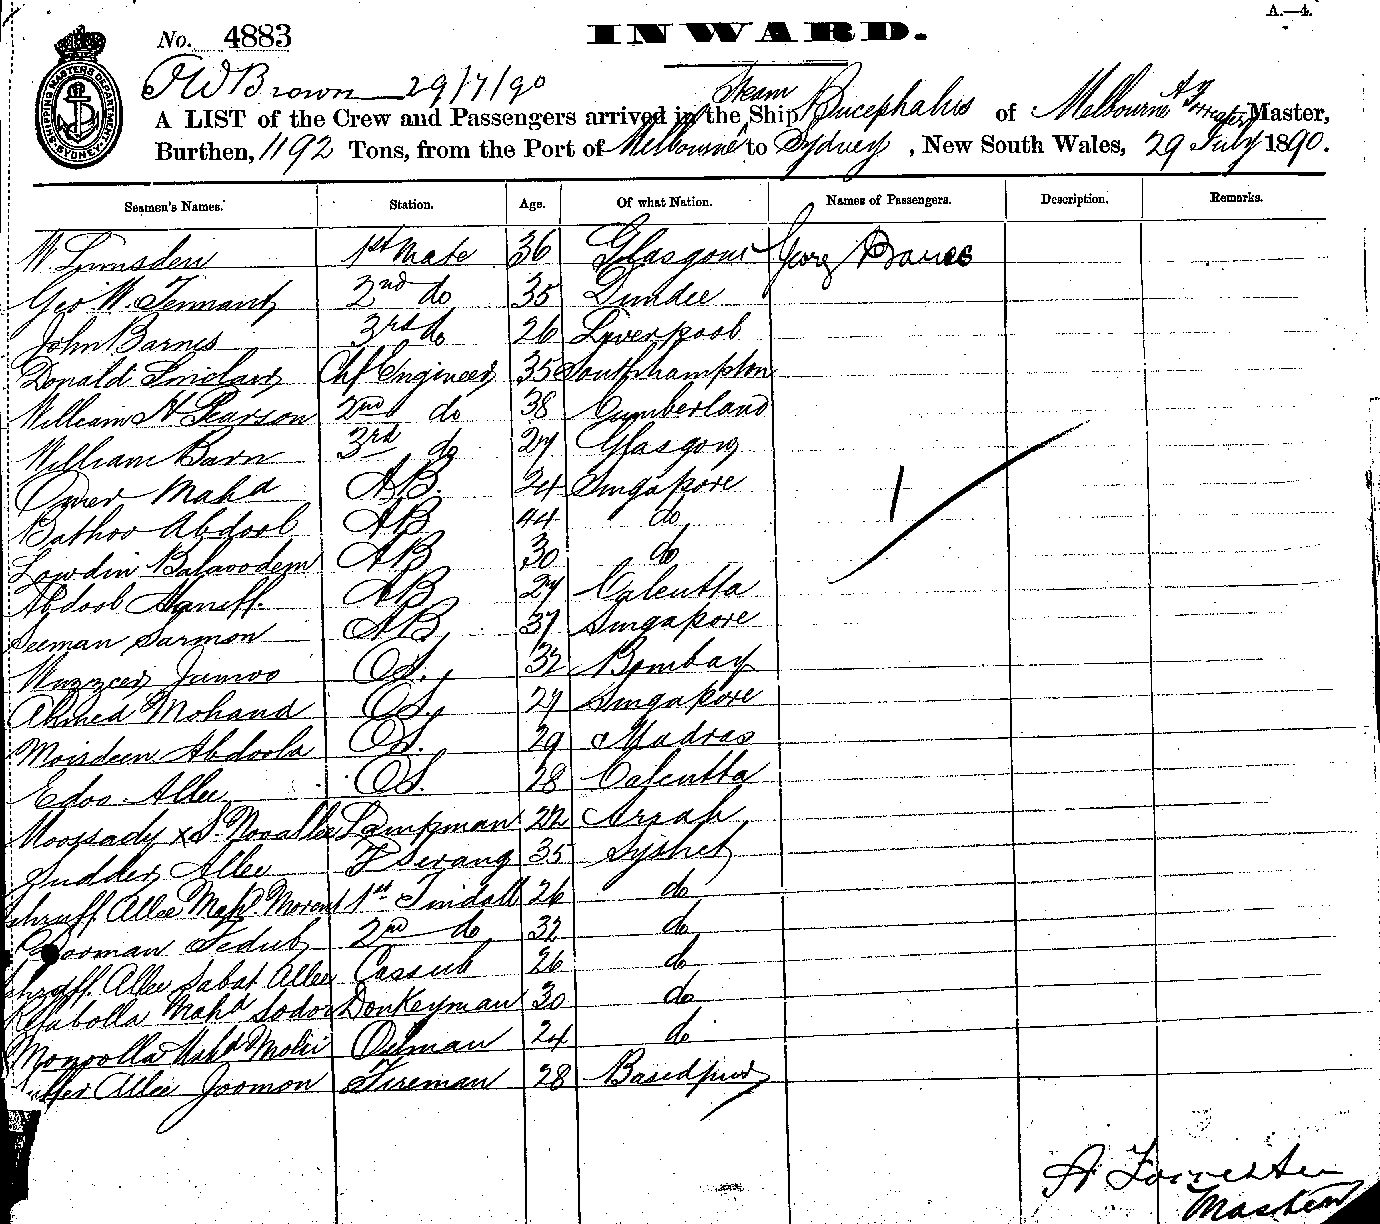 A.—4.
No. 4883
INWARD.
SHIPPING MASTERS DEPARTMENT SYDNEY
J W Brown 29/7/90
A LIST of the Crew and Passengers arrived in the Steam Ship Bucephalus of Melbourne A Forrester Master,
Burthen, 1192 Tons, from the Port of Melbourne to Sydney, New South Wales, 29 July 1890.
Seamen's Names. Station. Age. Of what Nation. Names of Passengers. Description. Remarks.
W Lumsden 1st Mate 36 Glasgow
Geo W. Tennant 2nd do 35 Dundee
John Barnes 3rd do 26 Liverpool
Donald Sinclair Chf Engineer 35 Southhampton
William H Pearson 2nd do 38 Cumberland
William Barn 3rd do 27 Glasgow
Omer Mahd AB. 24 Singapore
Bathoo Abdool AB 44 do
Lowdin AB 30 do
Abdool Haneff. AB 27 Calcutta
Seeman Sarmon AB 37 Singapore
Jumoo OS., 32 Bombay
Ahmed Mohamd OS., 27 Singapore
Moisdeen Abdoola OS. 29 Madras
Edoo Allee OS. 28 Calcutta
Lampman 22 Arrah
Allee F Serang 35 Syshet
Allee Mahd. 1st Tindall 26 do
2nd do 32 do
Allee Sabat Allee Cassub 26 do
Mahd Donkeyman 30 do
Monoolla Mahd Oilman 24 do
Allee Joomon Fireman 28
A Forrester
Master